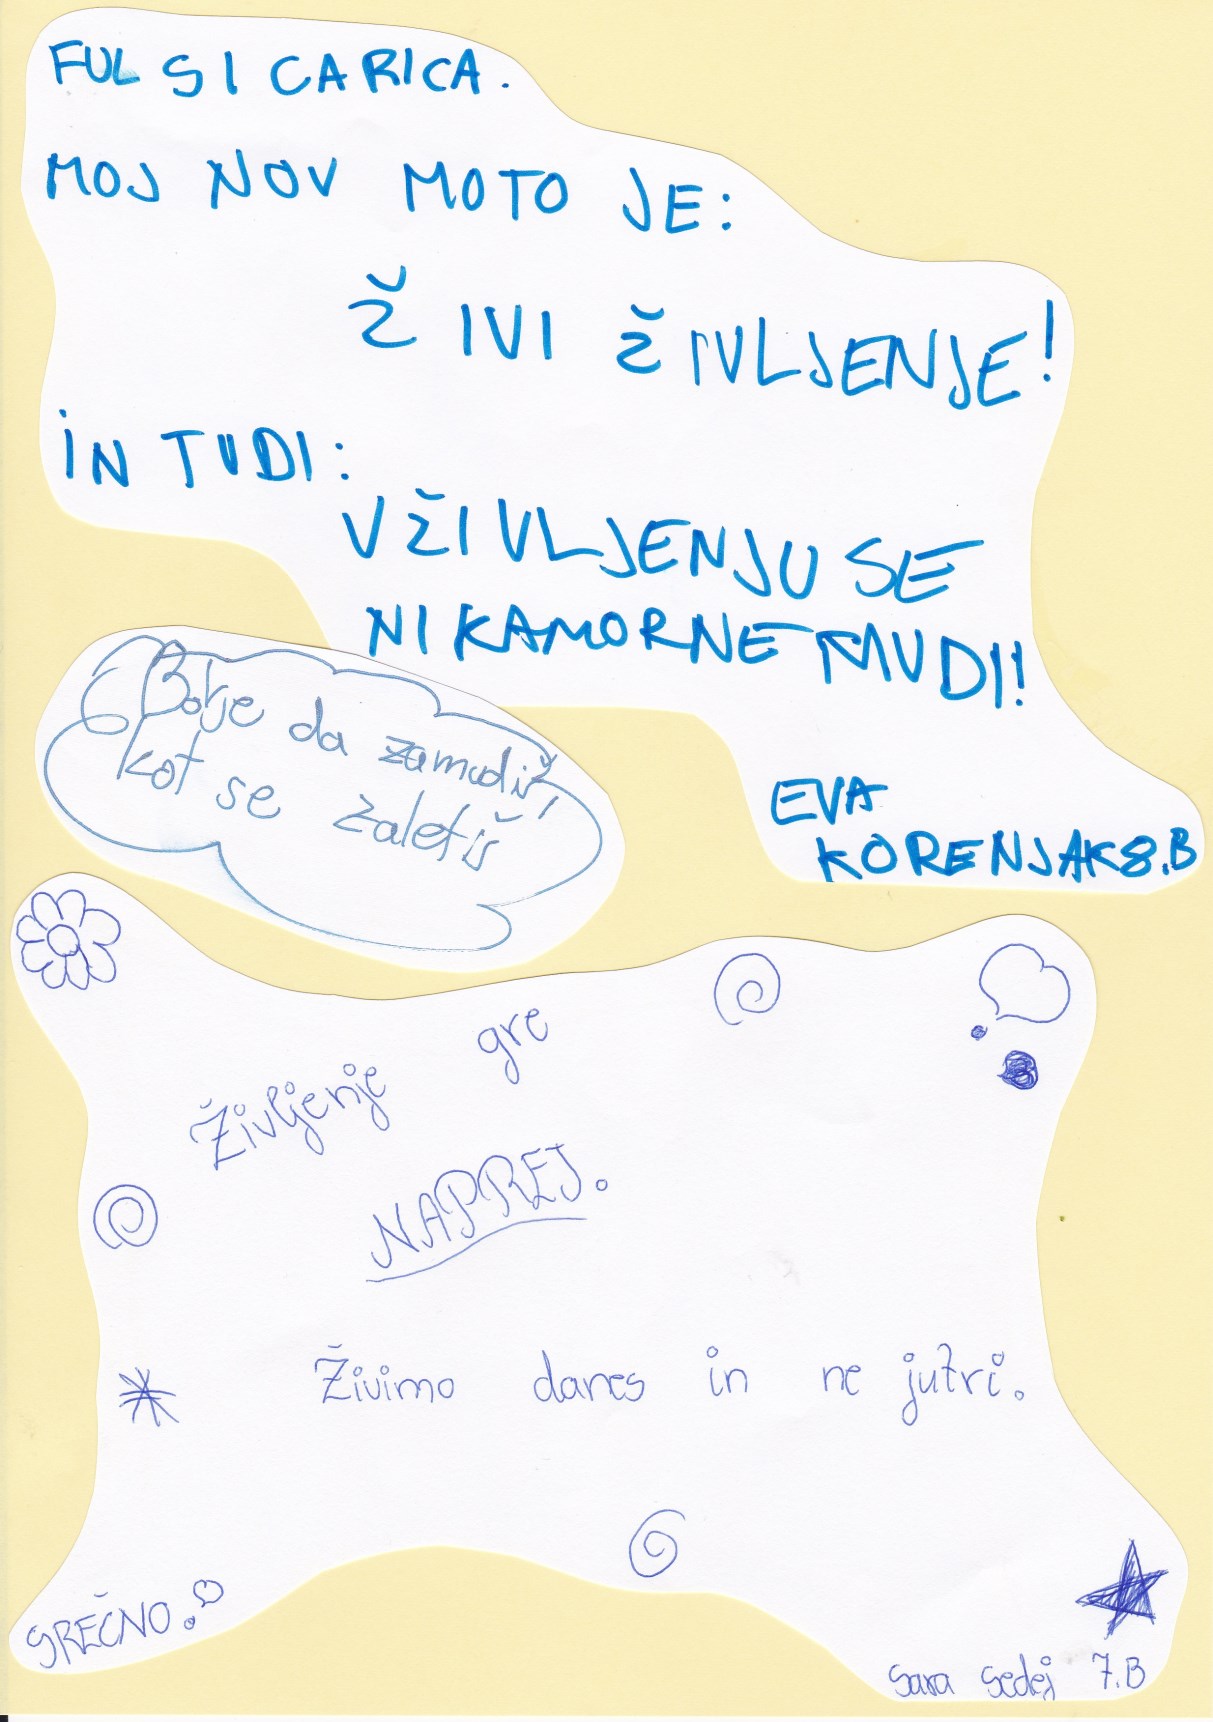 FUL SI CARICA.
MOJ NOV MOTO JE:
ŽIVI ŽIVLJENJE!
IN TUDI:
V ŽIVLJENJU SE
NIKAMOR NE MUDI!
EVA
KORENJAK 8.B
Bolje da zamudiš,
kot se zaletiš
Življenje gre
NAPREJ.
Živimo danes in ne jutri.
SREČNO.
Sara Sedej 7.B